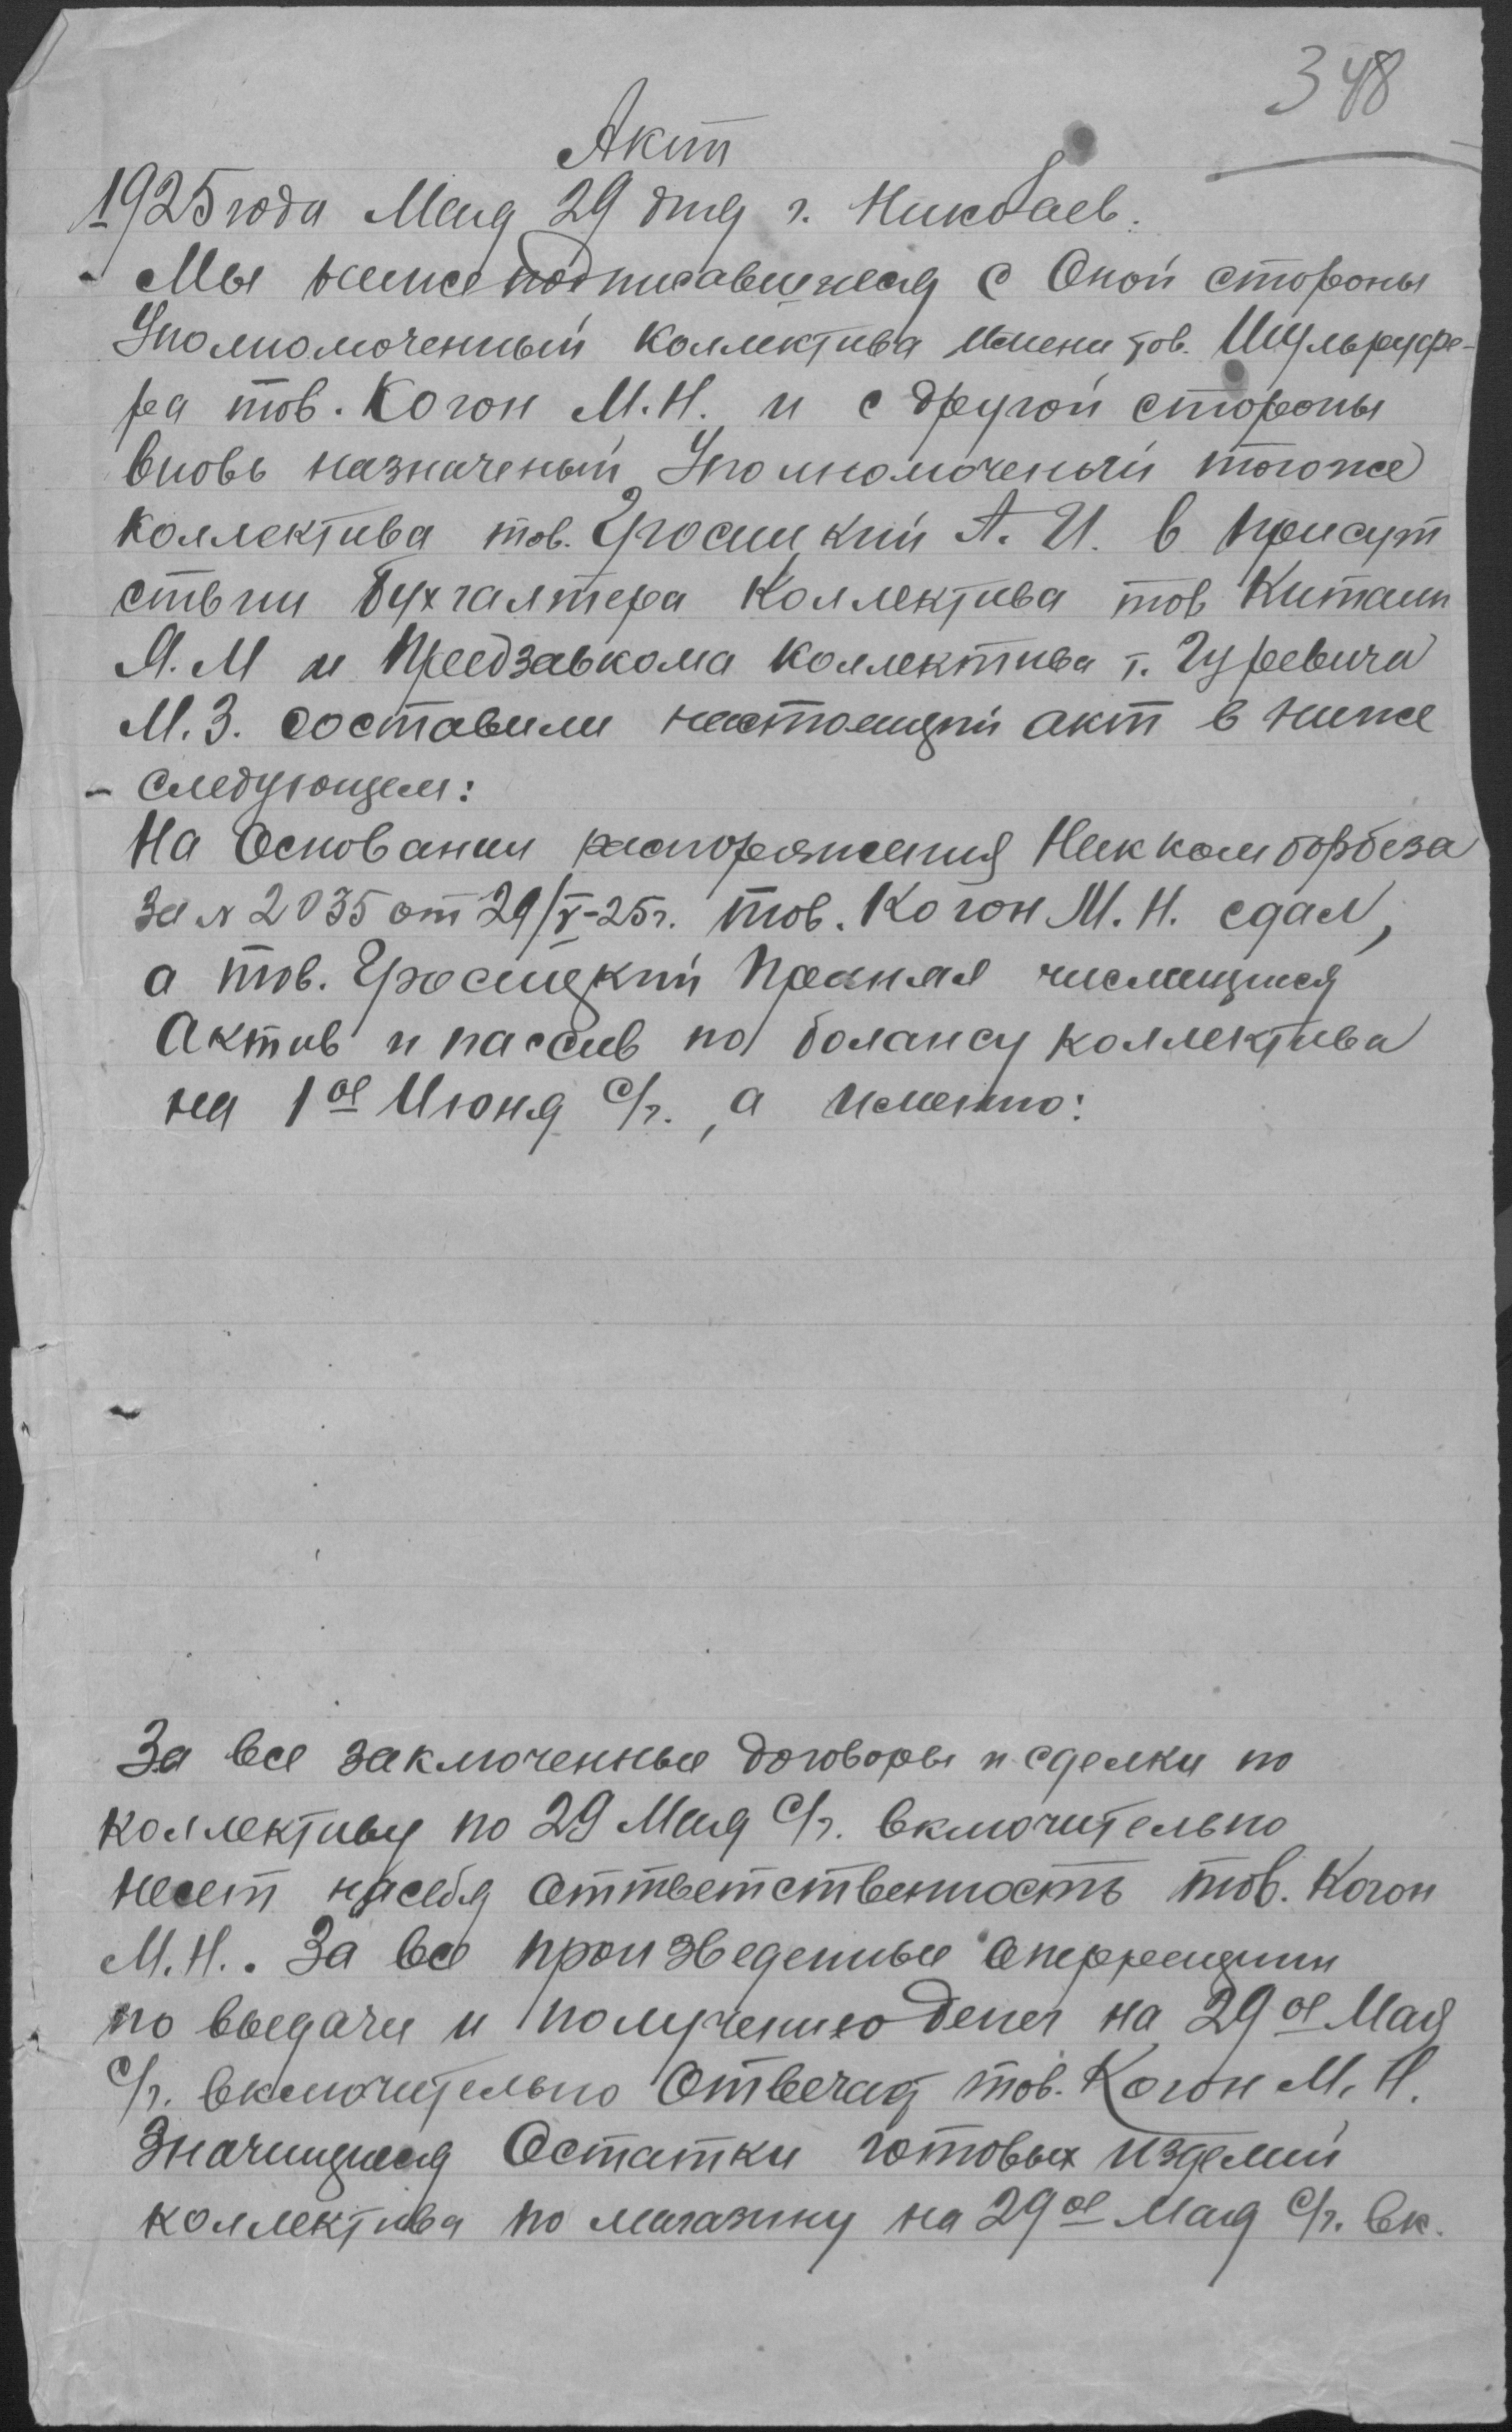 348
Акт
1925 года Мая 29 дня г. Николаев.
Мы нижеподписавшиеся с Оной стороны
Уполномоченный коллектива имени тов. Шульруфе-
ра тов. Когон М.Н. и с другой стороны
вновь назначеный Уполномоченый тогоже
коллектива тов. Гросицкий А. И. в присут
ствии бухгалтера Коллектива тов Китаин
Я. М и Предзавкома коллектива т. Гуревича
М. З. составили настоящий акт в ниже
- следующем:
На Основании распоряжения Никкомборбеза
за № 2035 от 29/V-25г. тов. Когон М. Н. сдал,
а тов. Гросицкий Принял числящийся
Актив и пассив по балансу коллектива
на 1ое Июня с/г., а именно:
За все заключенные договоры и сделки по
коллективу по 29 Мая с/г. включительно
несет насебя оттветственность тов. Когон
М. Н.. За все произведенные оперреции
по выдачи и получению денег на 29ое Мая
с/г. включительно Отвечает тов. Когон М. Н.
Значищиеся Остатки готовых изделий
коллектива по магазину на 29ое Мая с/г. вк.